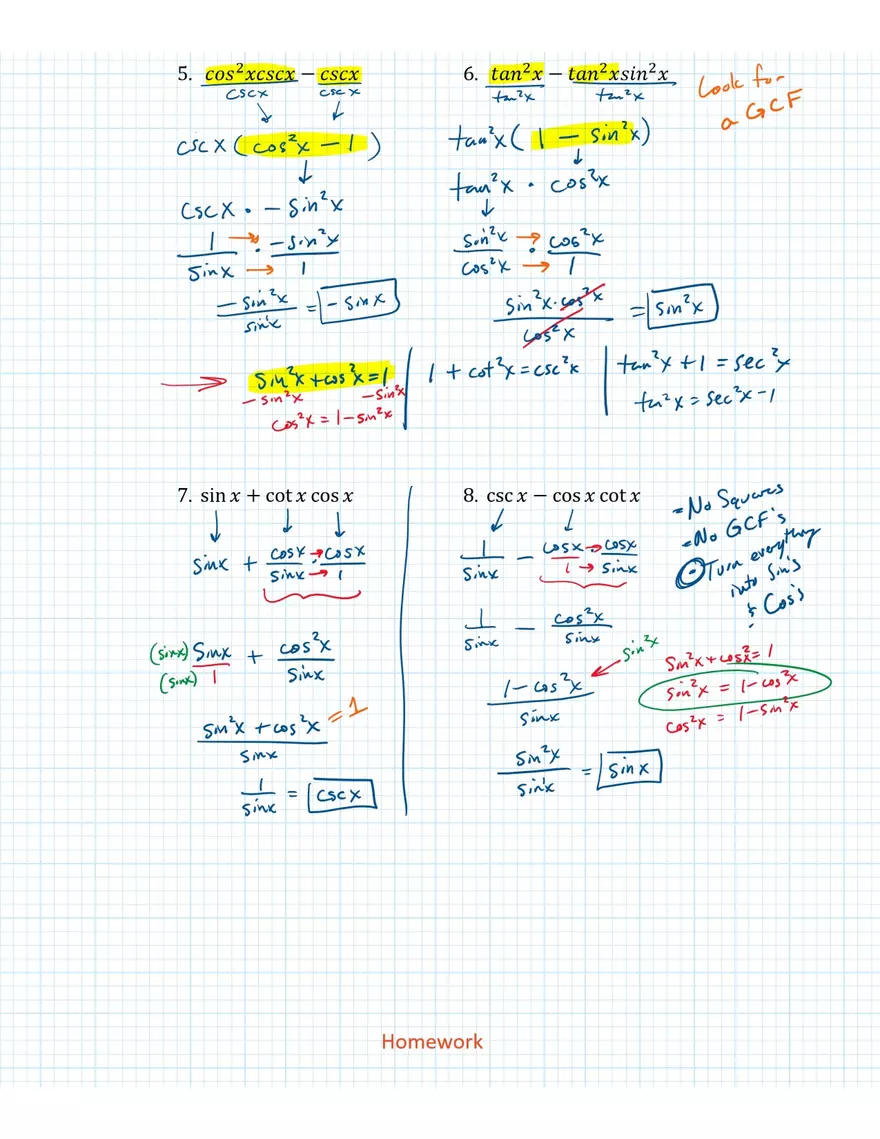 5. cos²xcscx − cscx
cscx cscx
cscx (cos²x − 1)
cscx · −sin²x
1/sinx → · −sin²x/1 →
−sin²x/sinx = −sinx
6. tan²x − tan²xsin²x
tan²x tan²x
Look for
a GCF
tan²x(1 − sin²x)
tan²x · cos²x
sin²x/cos²x → · cos²x/1 →
sin²x·cos²x/cos²x = sin²x
→ sin²x + cos²x = 1
−sin²x −sin²x
cos²x = 1 − sin²x
1 + cot²x = csc²x
tan²x + 1 = sec²x
tan²x = sec²x − 1
7. sin x + cot x cos x
sinx + cosx/sinx → · cosx/1 →
(sinx) sinx/(sinx) 1 + cos²x/sinx
sin²x + cos²x/sinx = 1
1/sinx = cscx
8. csc x − cos x cot x
1/sinx − cosx/1 → · cosx/sinx →
1/sinx − cos²x/sinx
1 − cos²x/sinx sin²x
sin²x/sinx = sinx
- No Squares
- No GCF's
- Turn everything
into Sin's
& Cos's
Sin²x + cos²x = 1
sin²x = 1 − cos²x
cos²x = 1 − sin²x
Homework